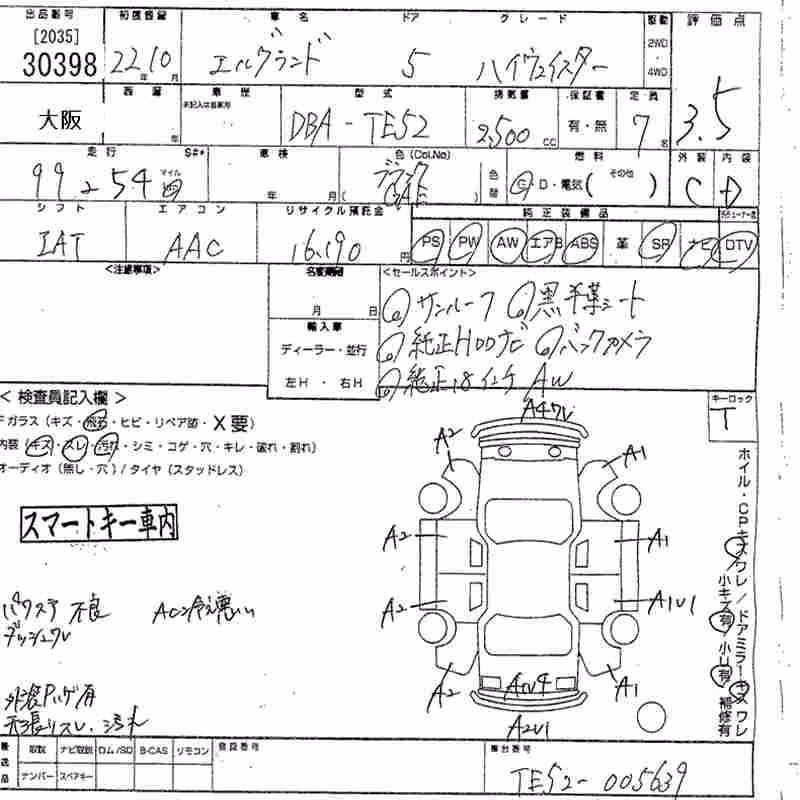 出品番号 初度登録 車名 ドア グレード 駆動 評価点
[2035] 2WD
30398 22年10月 エルグランド 5 ハイウェイスター ・4WD
西暦 車歴 型式 排気量 保証書 定員 3.5
未記入は自家用
大阪 年 DBA-TE52 2,500cc 有・無 7名
走行 S#* 車検 色(Col.No) 燃料 外装 内装
99254 マイル 年 月 ブラック 色替 G・D・電気( その他 ) C D
(GAE)
シフト エアコン リサイクル預託金 純正装備品
IAT AAC 16,190円 PS PW AW エアB ABS 革 SR ナビ DTV
<注意事項> 名変期限 <セールスポイント>
月 日 サンルーフ 黒半革シート
輸入車
ディーラー・並行 純正HDDナビ バックカメラ
左H・右H 純正18インチAW
< 検査員記入欄 > キーロック
Fガラス(キズ・飛石・ヒビ・リペア跡・X要) T
内装(キズ・スレ・汚れ・シミ・コゲ・穴・キレ・破れ・割れ)
オーディオ(無し・穴)/タイヤ(スタッドレス)
スマートキー車内
パワステ不良 ACン冷え悪い
ダッシュワレ
外装Pハゲ有
天張りスレ、汚れ
A4ワレ
A2 A1
A2 A1
A2 A1U1
A2 AU4 A1
A2U1
ホイル・CPキズワレ/ドアミラーキズワレ
小キズ有/小U有/補修有
後送品 取説 ナビ取説 ロム/SD B-CAS リモコン 登録番号 車台番号
ナンバー スペアキー TE52-005639